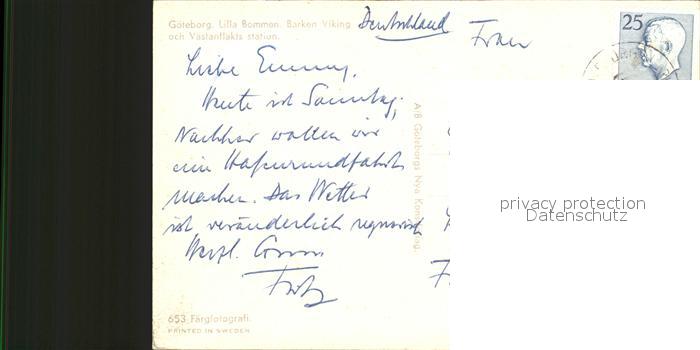 Göteborg. Lilla Bommen. Barken Viking
och Västanflakts station.
Deutschland
Frau
25
Liebe Emmy,
Heute ist Sonntag,
Nachher wollen wir
eine Hafenrundfahrt
machen. Das Wetter
ist veränderlich regnerisch
Herzl.
Fritz
A/B Göteborgs Nya
653 Färgfotografi.
PRINTED IN SWEDEN
privacy protection
Datenschutz